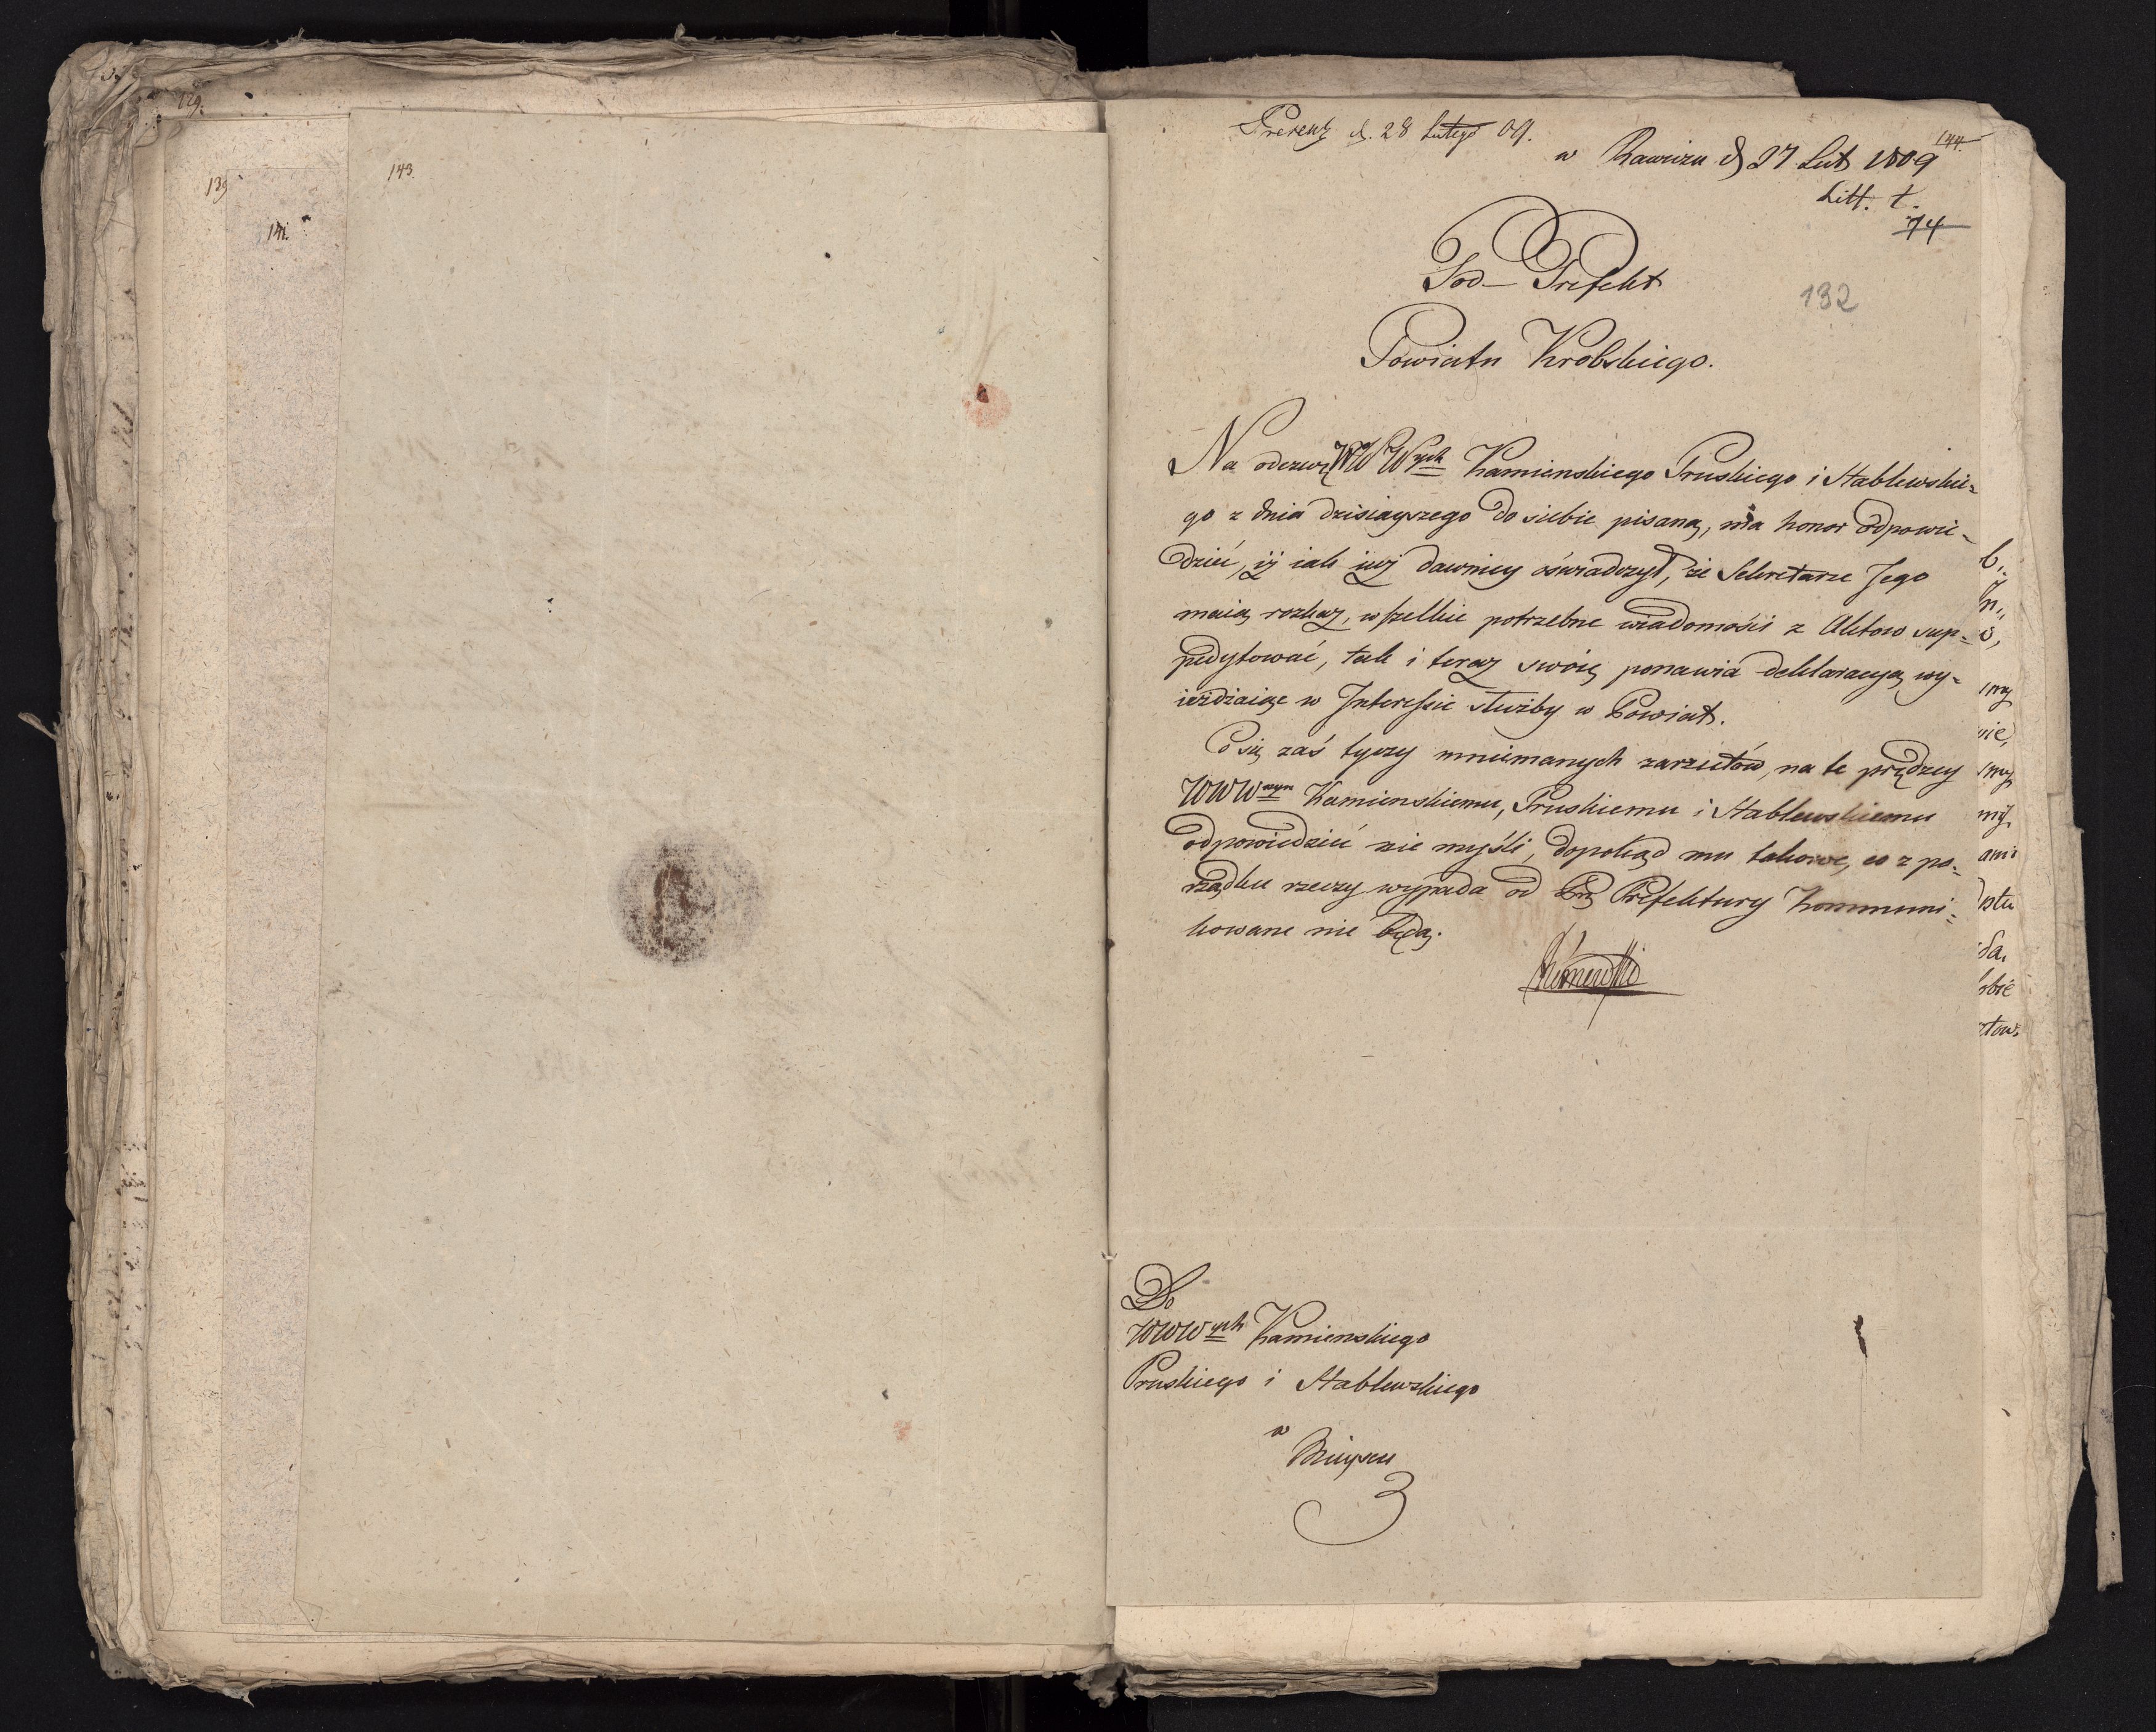 129.
139
141.
143.
Presentz d. 28 Lutego 09.
144.
w Rawiczu d 27 Lut 1809
Litt. t.
74
Pod-Prefekt
132
Powiatu Krobskiego.
Na odezwę WWWych Kamienskiego Pruskiego i Stablewskie=
go z dnia dzisiayszego do siebie pisaną, ma honor odpowie-
dzieć, iż iak iuż dawniey oświadczył, że Sekretarze Jego
maią rozkaz, wszelkie potrzebne wiadomości z Aktow sup=
pedytować, tak i teraz swoię ponawia deklaracyą wy=
ieżdżaiąc w Interessie służby w Powiat.
Co się zaś tyczy mniemanych zarzutów, na te prędzey
WWWnym Kamienskiemu, Pruskiemu i Stablewskiemu
odpowiedzieć nie myśli, dopokąd mu takowe, co z po=
rządku rzeczy wypada od Prefektury kommuni=
kowane nie będą.
Do
WWWych Kamienskiego
Pruskiego i Stablewskiego
w
Mieyscu